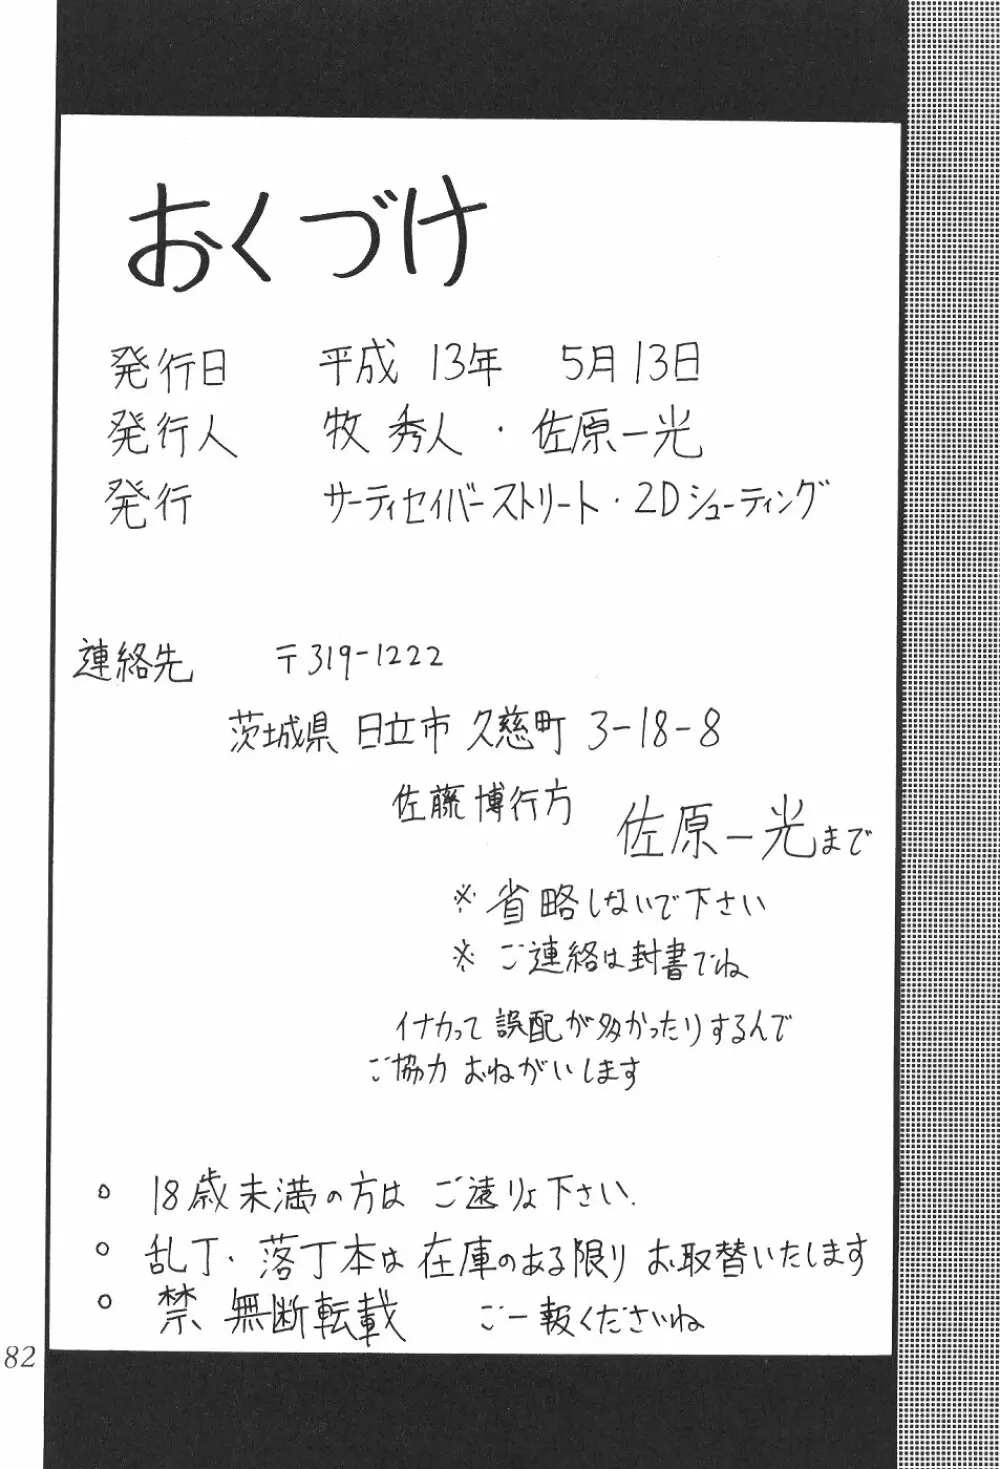 おくづけ
発行日 平成 13年 5月13日
発行人 牧 秀人・佐原一光
発行 サーティセイバーストリート・2Dシューティング
連絡先 〒319-1222
茨城県 日立市 久慈町 3-18-8
佐藤 博行方 佐原一光まで
※省略しないで下さい
※ご連絡は封書でね
イナカって誤配が多かったりするんで
ご協力 おねがいします
○ 18歳未満の方は ご遠りょ下さい.
○ 乱丁・落丁本は在庫のある限り お取替いたします
○ 禁 無断転載 ご一報くださいね
82